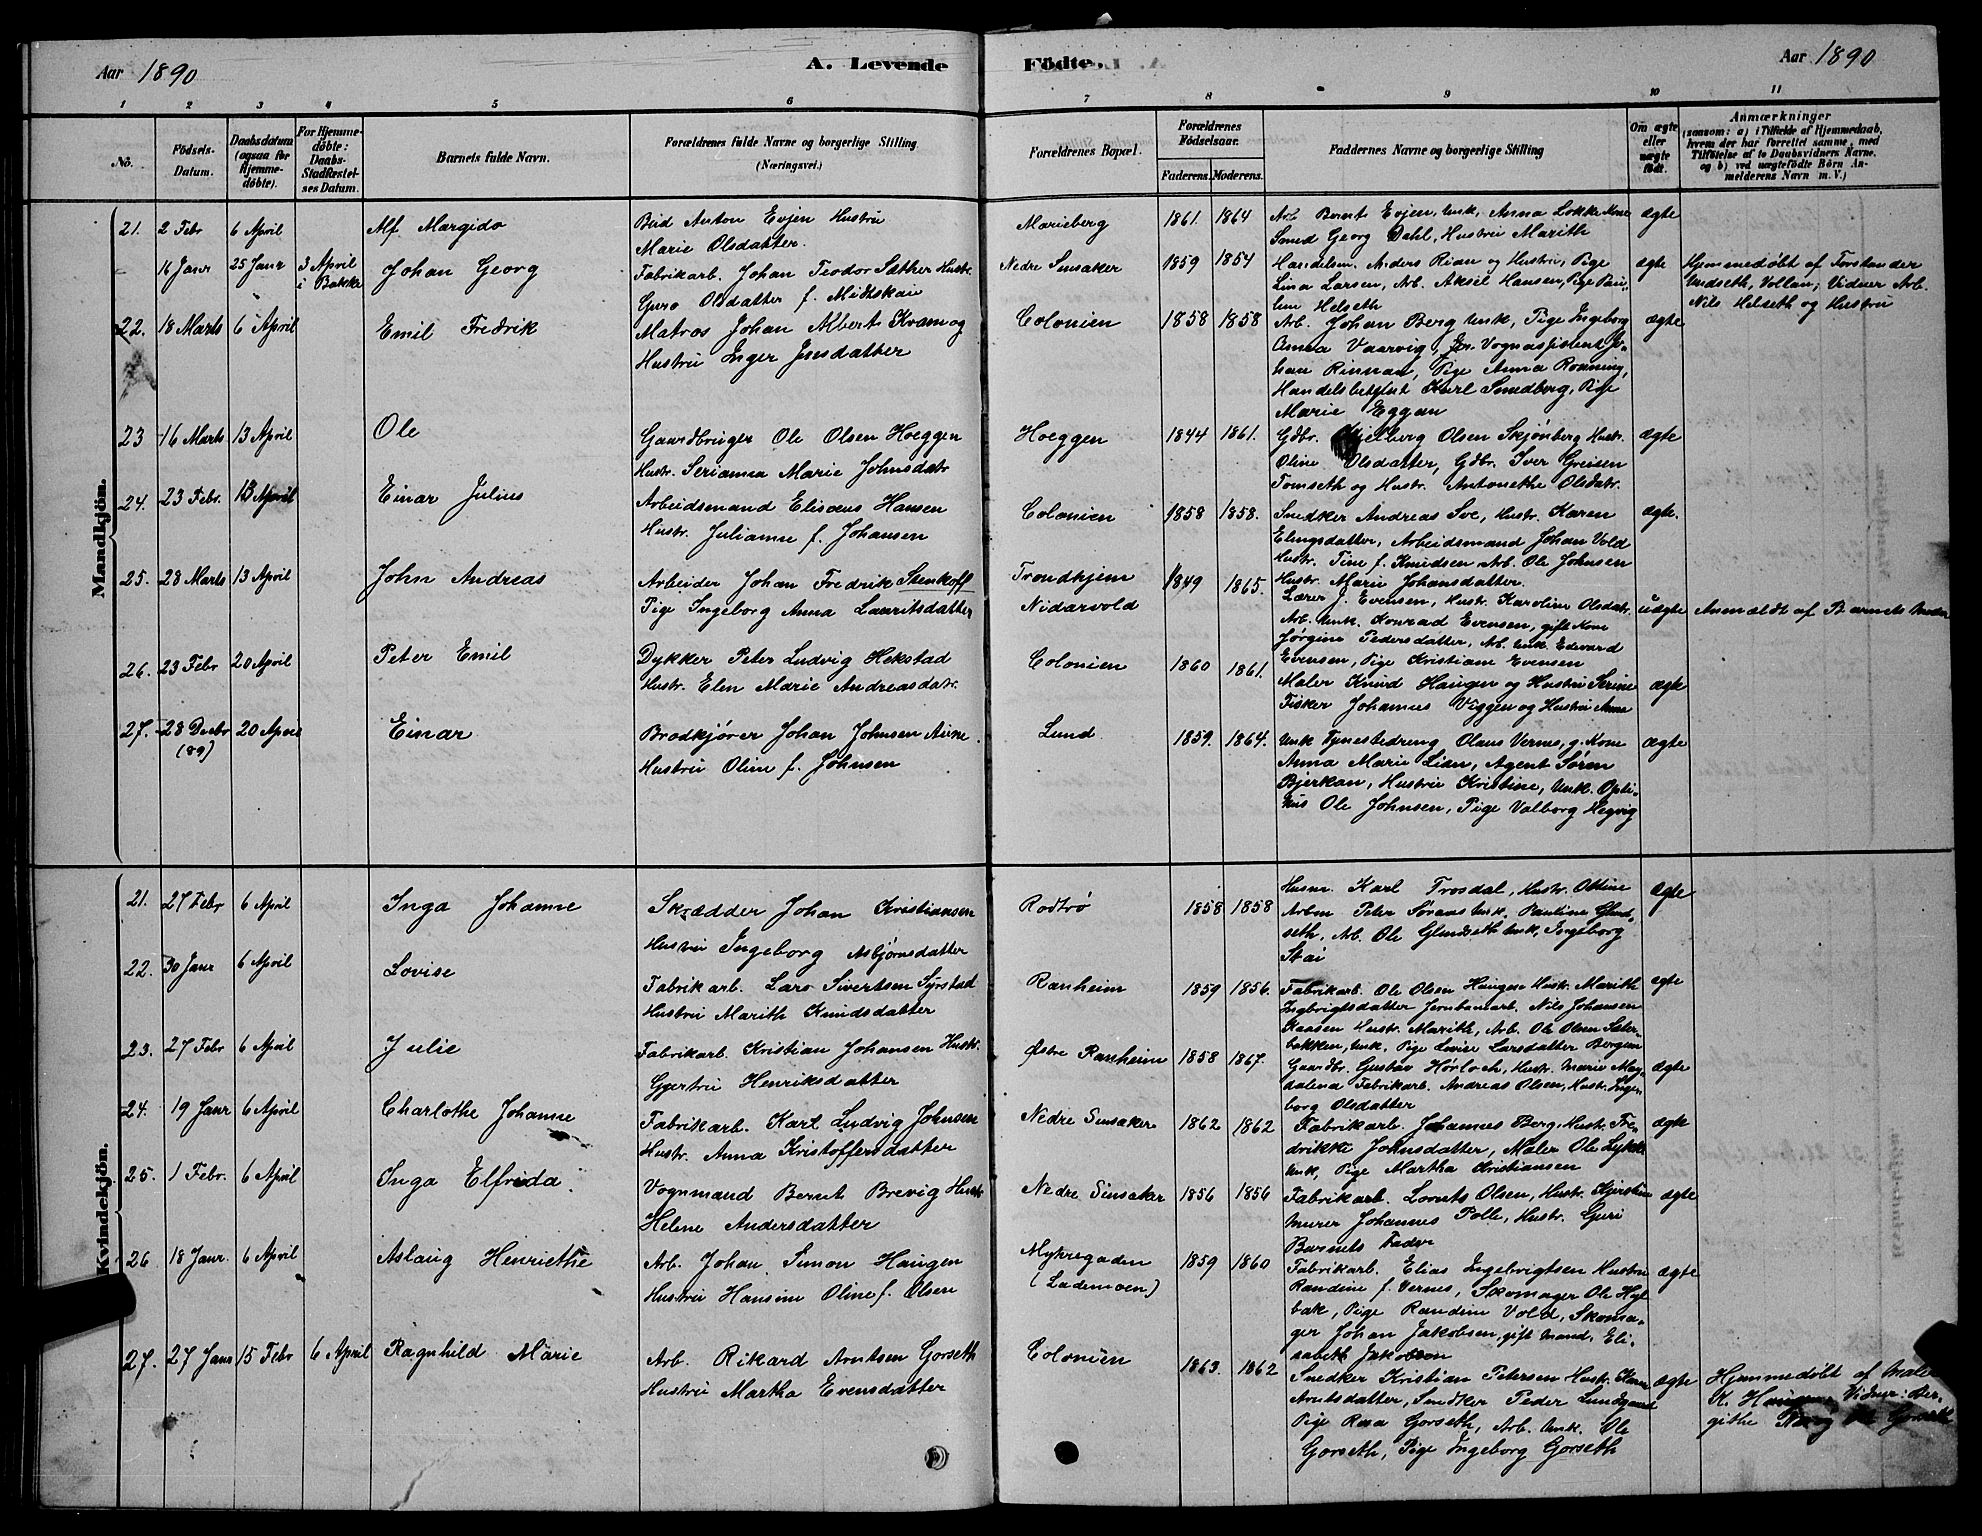 Aar 1890
A. Levende
Födte.
Aar 1890
1 2 3 4 5 6 7 8 9 10 11
No.
Födsels-
Datum.
Daabsdatum
(ogsaa for
Hjemme-
döbte).
For Hjemme-
döbte:
Daabs-
Stadfæstel-
ses Datum.
Barnets fulde Navn.
Forældrenes fulde Navne og borgerlige Stilling
(Næringsvei.)
Forældrenes Bopæl.
Forældrenes
Födselsaar.
Faderens. Moderens.
Faddernes Navne og borgerlige Stilling
Om ægte
eller
uægte
födt.
Anmærkninger
(saasom: a) i Tilfælde af Hjemmedaab,
hvem der har forrettet samme, med
Tilföielse af to Daabsvidners Navne.
og b) ved uægtefödte Börn An-
melderens Navn m. V.)
Mandkjön.
21. 2 Febr 6 April
Alf Margido
Bud Anton Evjen Hustru
Marie Olsdatter.
Marieberg
1861. 1864
Arb Bernt Evjen, Unk, Anna Løkke Kone
Smed Georg Dahl, Hustru Marith
ægte
16 Janr 25 Janr 3 April
i Bakke
Johan Georg
Fabrikarb. Johan Teodor Sæther Hustr.
Guro Olsdatter f. Midtskai
Nedre Sinsaker
1859 1854
Handelsm. Anders Rian og Hustru, Pige
Lina Larsen, Arb. Aksil Hansen, Pige Pau-
line Helseth
ægte
Hjemmedøbt af Forstander
Undseth, Vollan; Vidner Arb.
Nils Helseth og Hustru
22. 18 Marts 6 April
Emil Fredrik
Matros Johan Albert Kvam og
Hustru Inger Jensdatter
Colonien
1858 1858
Arb. Johan Berg Unk, Pige Ingeborg
Anna Vaarvig, Jo-
han Rinnan, Pige Anna Rønning,
Handelsbetjent Karl Smedberg, Pige
Marie Eggan
ægte
23 16 Marts 13 April
Ole
Gaardbruger Ole Olsen Hoeggen
Hustr. Serianna Marie Johnsdatr
Hoeggen
1844 1861.
Gdbr. Olsen Skjønberg Hustr.
Oline Olsdatter, Gdbr. Iver Greisen
Tomseth og Hustr. Antonethe Olsdatr.
ægte
24. 23 Febr. 13 April
Einar Julius
Arbeidsmand Elisæus Hansen
Hustr. Julianne f. Johansen
Colonien
1858 1858.
Snedker Andreas Sve, Hustr. Karen
Elingsdatter, Arbeidsmand Johan Vold
Hustr. Tine f. Knudsen Arb. Ole Johnsen
Hustr. Marie Johansdatter.
ægte.
25. 28 Marts 13 April
John Andreas
Arbeider Johan Fredrik Stenkoff
Pige Ingeborg Anna Lauritsdatter
Trondhjem
Nidarvold
1849 1865.
Lærer J. Evensen, Hustr. Karoline Olsdatr.
Arb. Unk. Konrad Evensen, gift Kone
Jørgine Pedersdatter, Arb. Unk. Edvard
Evensen, Pige Kristiane Evensen
uægte
Anmældt af Barnets Moder
26. 23 Febr 20 April
Peter Emil
Dykker Peter Ludvig Hekstad
Hustr. Elen Marie Andreasdatr.
Colonien
1860 1861.
Maler Knud Haugen og Hustru Serine
Fisker Johannes Viggen og Hustru Anne
ægte
27. 28 Decbr
(89)
20 April
Einar
Brødkjører Johan Johnsen Aune
Hustru Oline f. Johnsen
Lund
1859. 1864.
Unk Tjenestedreng Olaus Vernes, g. Kone
Anna Marie Lian, Agent Søren
Bjerkan, Hustru Kristine, Unk. Opti-
kus Ole Johnsen, Pige Valborg Hegvig
ægte
Kvindekjön.
21. 27 Febr 6 April
Inga Johanne
Skrædder Johan Kristiansen
Hustru Ingeborg Asbjørnsdatter
Rodtrø
1858 1858
Husm. Karl Trosdal, Hustr. Oline
Arbm Peter Sørans Unk. Pauline Glend-
seth, Arb. Ole Glendseth Unk, Ingeborg
Stai
Ægte
22. 30 Janr 6 April
Lovise
Fabrikarb. Lars Sivertsen Syrstad
Hustru Marith Knudsdatter
Ranheim
1859 1856.
Fabrikarb. Ole Olsen Haugen Hustr. Marith
Ingbrigtsdatter Jernbanearb. Nils Johansen
Kaasen Hustr. Marith, Arb. Ole Olsen Sæter-
bakken, Unk. Pige Lovise Larsdatter Bergen
ægte
23. 27 Febr 6 April
Julie
Fabrikarb. Kristian Johansen Hustr.
Gjertru Henriksdatter
Østre Ranheim
1858 1867.
Gaardbr. Gustav Hørloch, Hustr. Marie Mag-
dalena Fabrikarb. Andreas Olsen, Hustr. Inge-
borg Olsdatter
ægte
24. 19 Janr 6 April
Charlothe Johanne
Fabrikarb. Karl Ludvig Johnsen
Hustr. Anna Kristoffersdatter
Nedre Sinsaker
1862 1862
Fabrikarb. Johannes Berg, Hustr. Fre-
drikke Johnsdatter, Maler Ole Lykke
Unk, Pige Martha Kristiansen
ægte
25. 1 Febr. 6 April
Inga Elfrida
Vognmand Bernt Brevig Hustr
Helene Andersdatter
Nedre Sinsaker
1856 1856
Fabrikarb. Lornts Olsen, Hustr. Kjerstine
Murer Johannes Polle, Hustr. Guri
Barnets Fader
ægte
26 18 Janr. 6 April
Aslaug Henriethe
Arb. Johan Simon Haugen
Hustru Hansine Oline f. Olsen
Mykregaden
(Lademoen)
1859 1860
Fabrikarb. Elias Ingebrigtsen Hustru
Randine f. Vernes, Skomager Ole Hyl-
bak, Pige Randine Vold, Skoma-
ger Johan Jakobsen, gift Mand, Eli-
sabeth Jakobsen
ægte
27. 27 Janr 15 Febr 6 April
Ragnhild Marie
Arb. Rikard Arntsen Gorseth
Hustru Martha Evensdatter
Colonien
1863. 1862
Snedker Kristian Petersen Hustr. Karen
Arntsdatter, Snedker Peder Lundgaard
Pige Rosa Gorseth, Arb. Unk. Ole
Gorseth, Pige Ingeborg Gorseth
ægte
Hjemmedøbt af Maler
K. Haugen. Vidner: Ber-
githe Gorseth